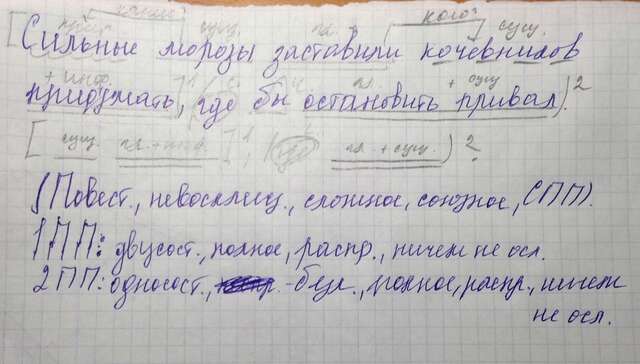 какие? сущ. гл. кого? сущ.
[Сильные морозы заставили кочевников
+ инф. ]¹ гл + сущ
придумать, где бы остановить привал).²
[ сущ. гл. + инф. ]¹, (где гл + сущ.)²
(Повест., невосклиц., сложное, союзное, СПП).
1ПП: двусост., полное, распр., ничем не осл.
2ПП: односост., - безл., полное, распр., ничем
не осл.